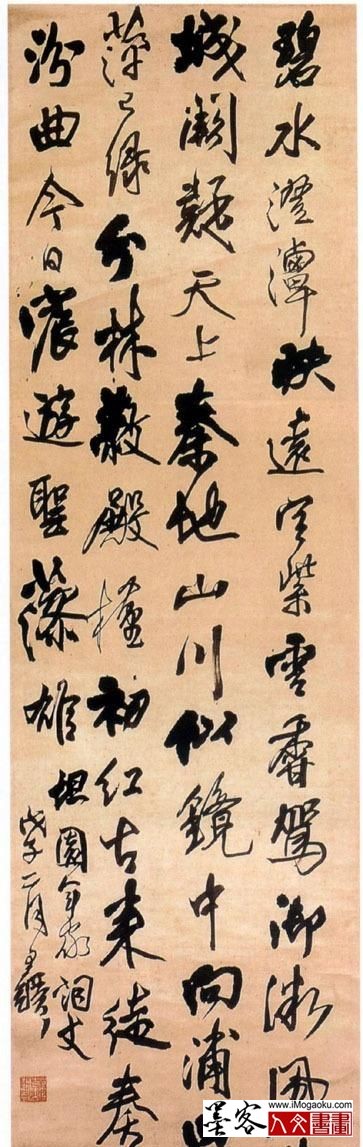 碧水澄潭映遠空紫雲香駕御微風
城闕疑天上秦地山川似鏡中向浦
萍已綠分林蔽殿槿初紅古來徒奏
汾曲今日宸遊聖藻雄 坦園年家詞丈
戊子二月王鐸
www.iMogaoku.com
墨客 人文書畫